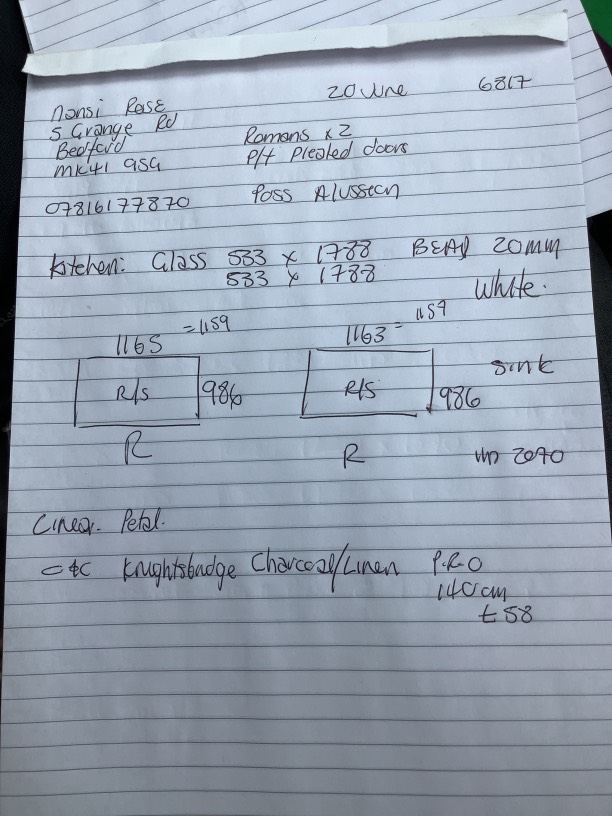 20 June 6817
Nansi Rose
5 Grange Rd
Bedford
MK41 9SG
Romans x 2
P/f Pleated doors
07816177870
Poss Alusscan
Kitchen: Glass 533 x 1788 BEAD 20mm
533 x 1788
White.
1165 = 1159
1163 = 1159
R/S 986
R/S 986
sink
R
R
up 2070
Linear. Petal.
C&C Knightsbridge Charcoal/Linen P.R.O
140cm
£58